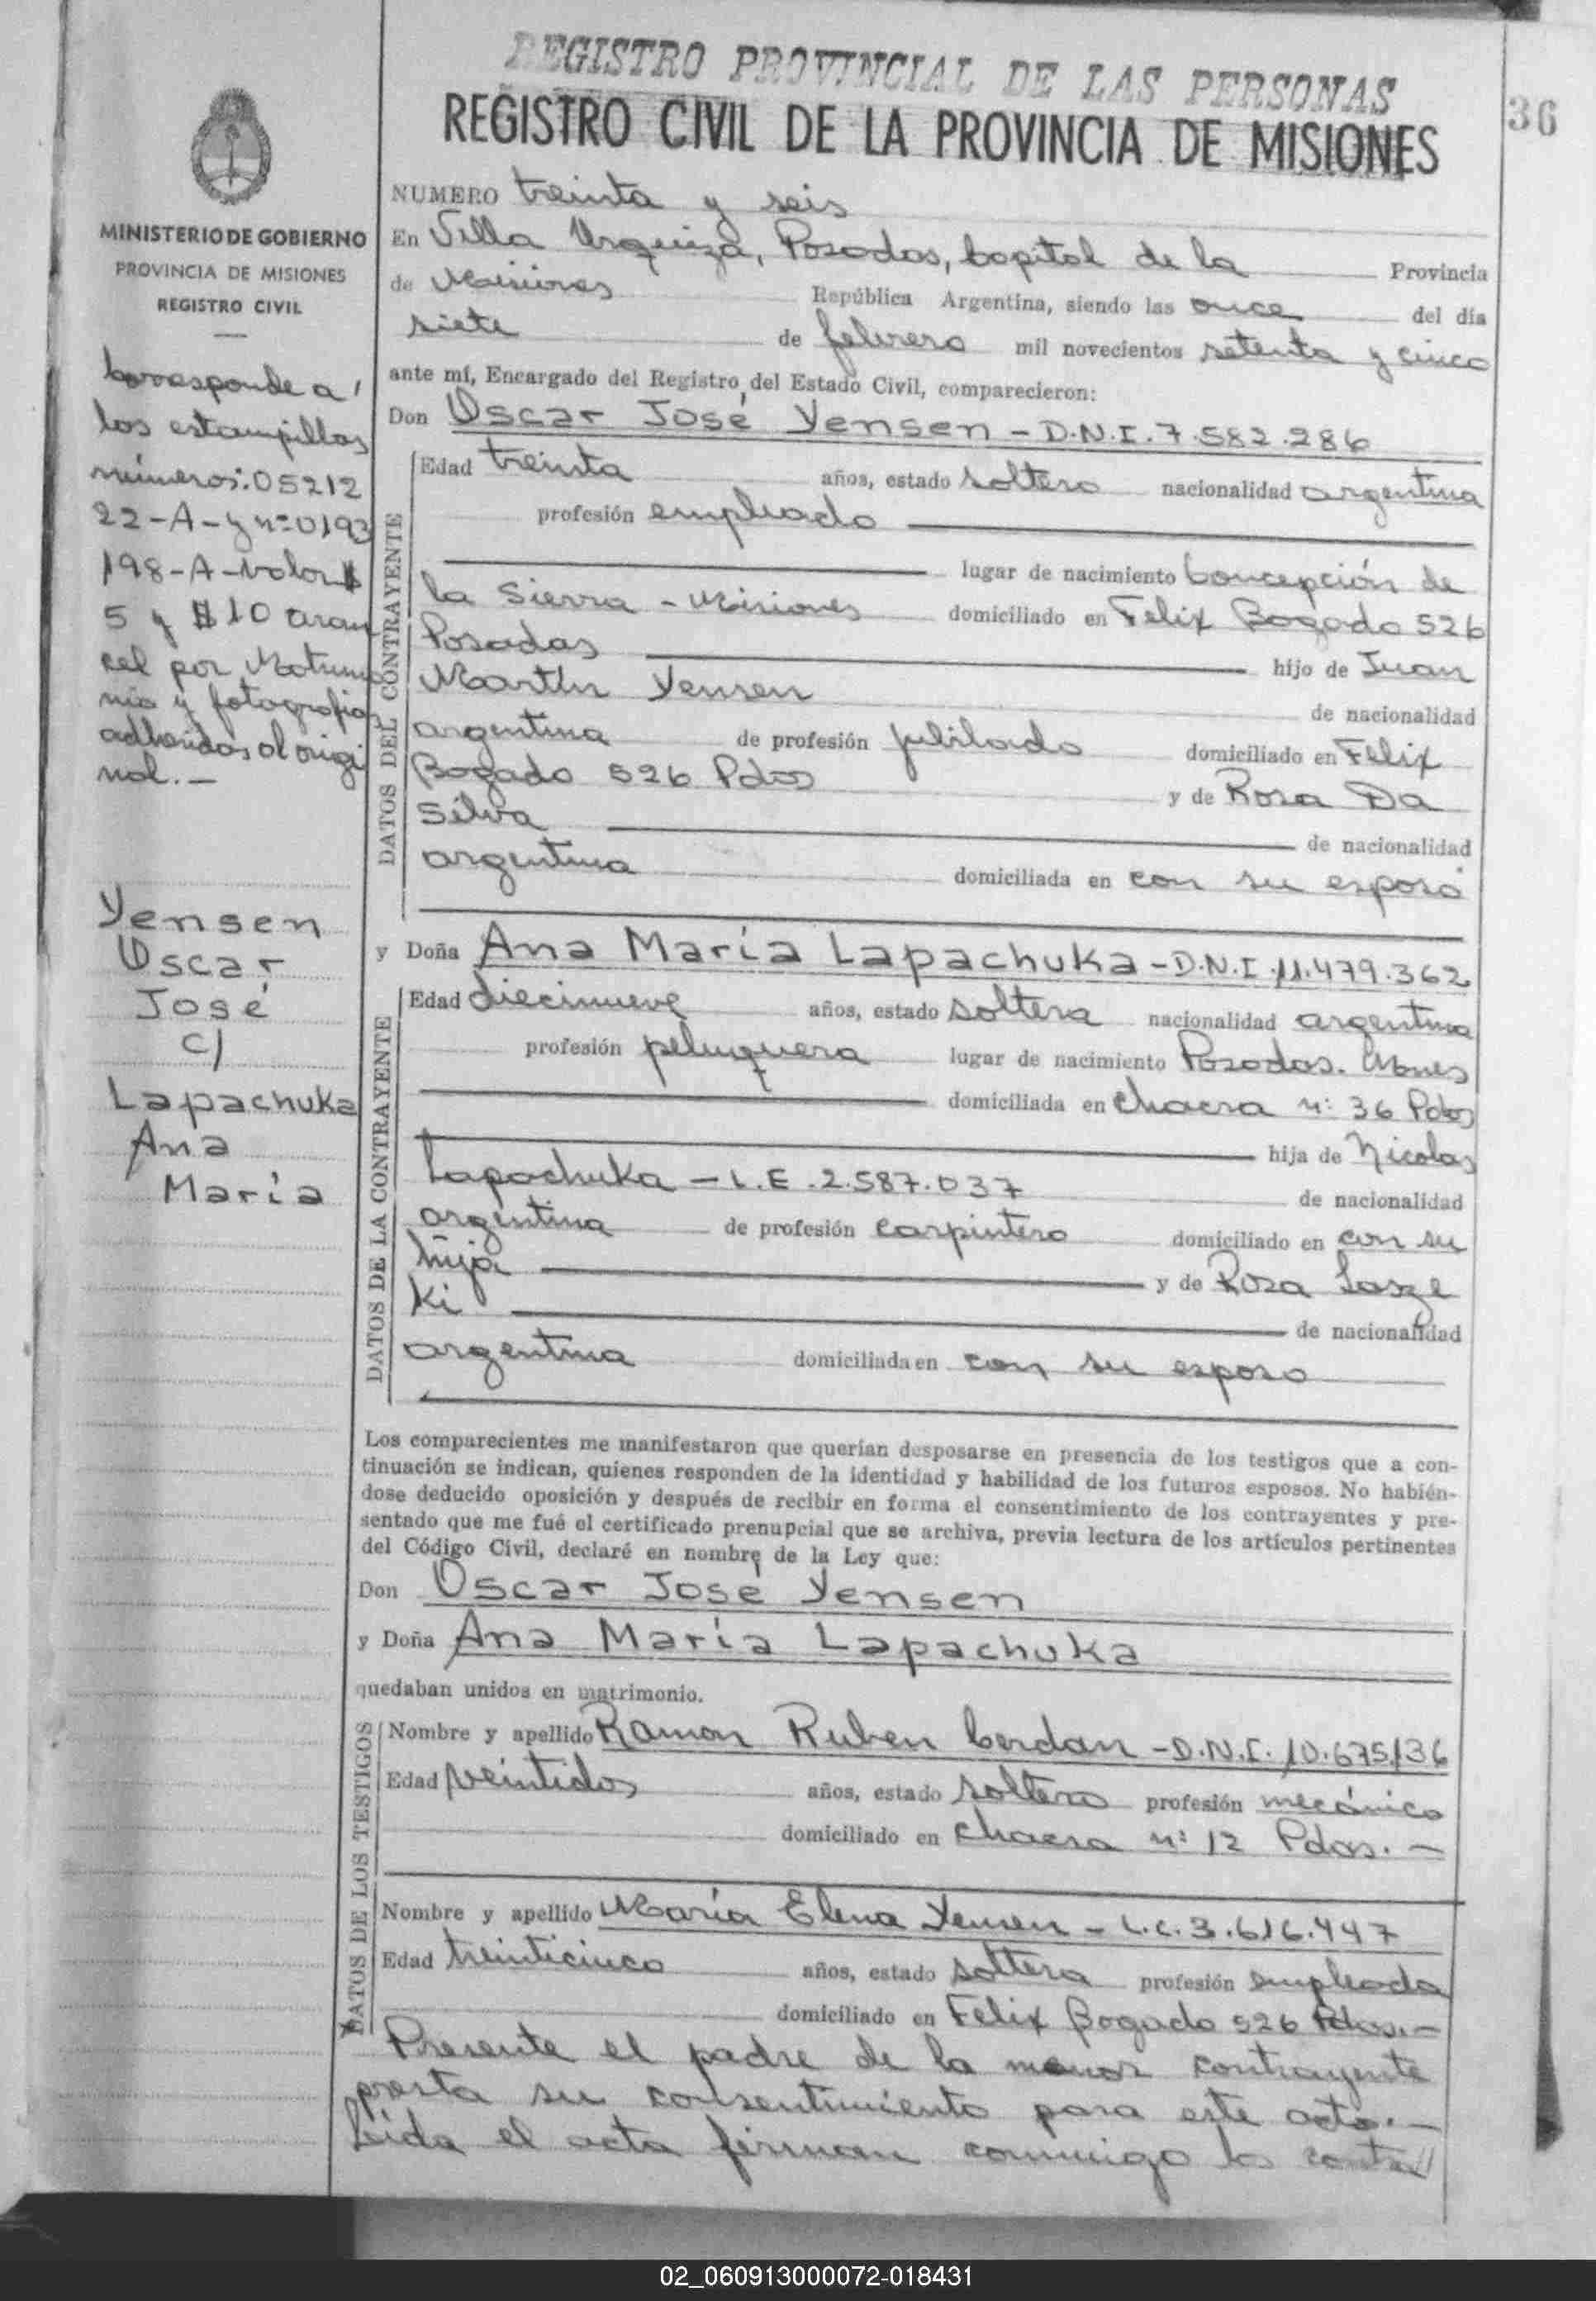 REGISTRO PROVINCIAL DE LAS PERSONAS
REGISTRO CIVIL DE LA PROVINCIA DE MISIONES
36
MINISTERIO DE GOBIERNO
PROVINCIA DE MISIONES
REGISTRO CIVIL
Corresponde a
los estampillas
números: 05212
22-A-y nº 0193
198-A-Valor $
5 y $10 aran
cel por Matrimo
nio y fotografias
adheridas al origi
nal.-
Yensen
Oscar
José
c/
Lapachuka
Ana
María
NUMERO treinta y seis
En Villa Urquiza, Posadas, Capital de la Provincia
de Misiones República Argentina, siendo las once del día
siete de febrero mil novecientos setenta y cinco
ante mí, Encargado del Registro del Estado Civil, comparecieron:
Don Oscar José Yensen - D.N.I. 7.582.286
DATOS DEL CONTRAYENTE
Edad treinta años, estado soltero nacionalidad argentina
profesión empleado
lugar de nacimiento Concepción de
la Sierra - Misiones domiciliado en Felix Bogado 526
Posadas hijo de Juan
Martín Yensen de nacionalidad
argentina de profesión jubilado domiciliado en Félix
Bogado 526 Pdas y de Rosa Da
Silva de nacionalidad
argentina domiciliada en con su esposo
y Doña Ana María Lapachuka - D.N.I. 11.479.362
DATOS DE LA CONTRAYENTE
Edad diecinueve años, estado soltera nacionalidad argentina
profesión peluquera lugar de nacimiento Posadas. Mnes
domiciliada en Chacra nº 36 Pdas
hija de Nicolas
Lapachuka - L.E. 2.587.037 de nacionalidad
argentina de profesión carpintero domiciliado en con su
hija y de Rosa
ki de nacionalidad
argentina domiciliada en con su esposo
Los comparecientes me manifestaron que querían desposarse en presencia de los testigos que a con-
tinuación se indican, quienes responden de la identidad y habilidad de los futuros esposos. No habién-
dose deducido oposición y después de recibir en forma el consentimiento de los contrayentes y pre-
sentado que me fué el certificado prenupcial que se archiva, previa lectura de los artículos pertinentes
del Código Civil, declaré en nombre de la Ley que:
Don Oscar José Yensen
y Doña Ana María Lapachuka
quedaban unidos en matrimonio.
DATOS DE LOS TESTIGOS
Nombre y apellido Ramon Ruben Cerdan - D.N.I. 10.675.136
Edad veintidos años, estado soltero profesión mecánico
domiciliado en Chacra nº 12 Pdas. -
Nombre y apellido María Elena Yensen - L.C. 3.616.447
Edad treinticinco años, estado soltera profesión empleada
domiciliado en Felix Bogado 526 Pdas. -
Presente el padre de la menor contrayente
presta su consentimiento para este acto. -
Leída el acta firman conmigo los contra//
02_060913000072-018431